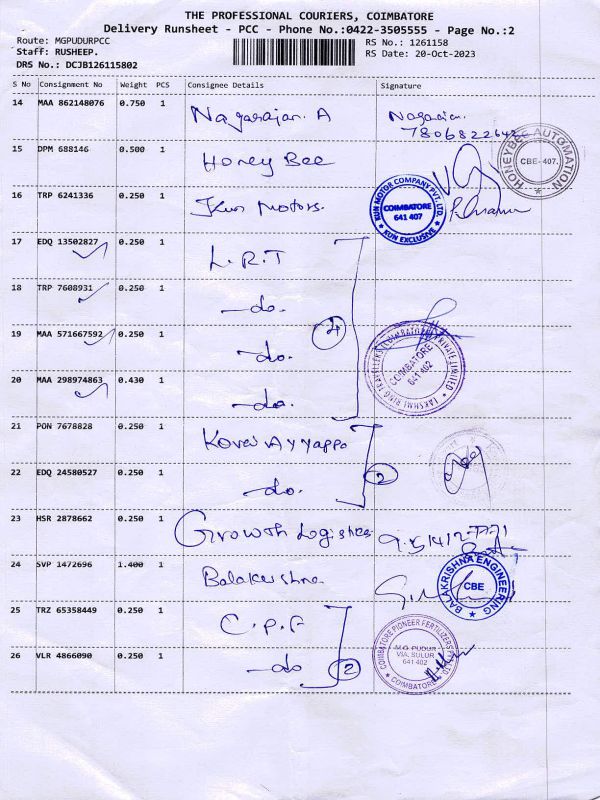 THE PROFESSIONAL COURIERS, COIMBATORE
Delivery Runsheet - PCC - Phone No.:0422-3505555 - Page No.:2
Route: MGPUDURPCC RS No.: 1261158
Staff: RUSHEEP. RS Date: 20-Oct-2023
DRS No.: DCJB126115802
S No Consignment No Weight PCS Consignee Details Signature
14 MAA 862148076 0.750 1 Nagarajan. A Nagarajan.
78068226
15 DPM 688146 0.500 1 Honey Bee HONEYBEE AUTOMATION CBE-407.
16 TRP 6241336 0.250 1 Kun Motors. KUN MOTOR COMPANY PVT. LTD. COIMBATORE 641 407 KUN EXCLUSIVE
17 EDQ 13502827 0.250 1 L.R.T
18 TRP 7608931 0.250 1 -do.
4
19 MAA 571667592 0.250 1 -do. LAKSHMI RING TRAVELLERS (COIMBATORE) PRIVATE LIMITED COIMBATORE 641 402
20 MAA 298974863 0.430 1 -do.
21 PON 7678828 0.250 1 Kovai Ayyappa
22 EDQ 24580527 0.250 1 -do. 2
23 HSR 2878662 0.250 1 Growth Logistics
24 SVP 1472696 1.400 1 Balakrishna BALAKRISHNA ENGINEERING CBE
25 TRZ 65358449 0.250 1 C.P.F COIMBATORE PIONEER FERTILIZERS PVT LTD. M.G. PUDUR VIA. SULUR 641 402 COIMBATORE
26 VLR 4866090 0.250 1 -do 2